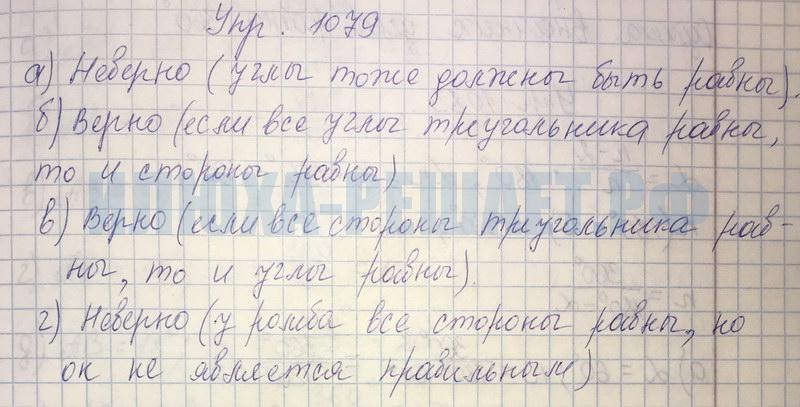 Упр. 1079
а) Неверно (углы тоже должны быть равны).
б) Верно (если все углы треугольника равны,
то и стороны равны)
ИЛЮХА-РЕШАЕТ.РФ
в) Верно (если все стороны треугольника рав-
ны, то и углы равны).
г) Неверно (у ромба все стороны равны, но
он не является правильным)